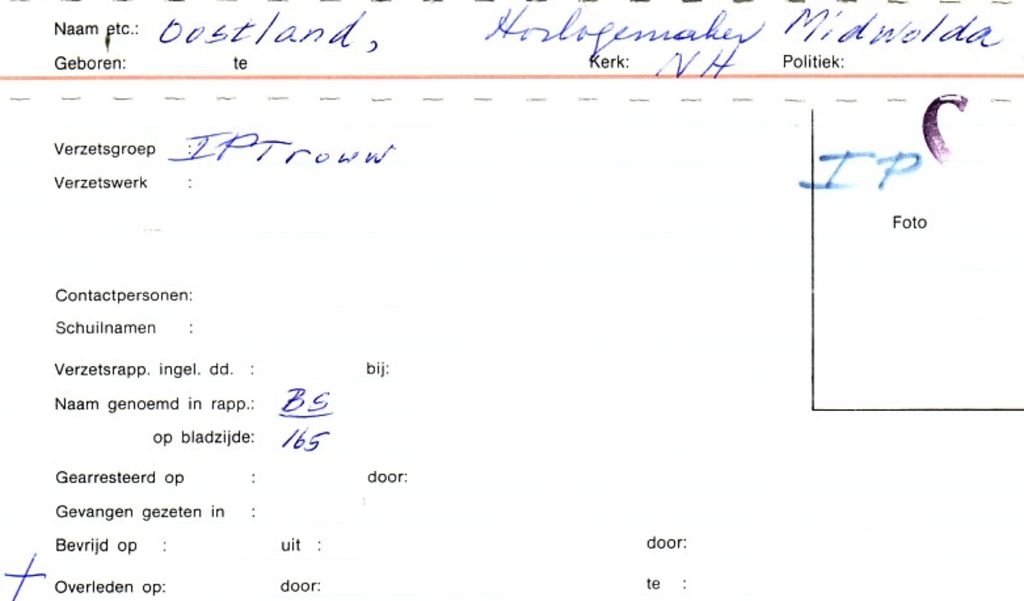 Naam etc.: Oostland, Horlogemaker Midwolda
Geboren: te Kerk: NH Politiek:
Verzetsgroep : IP Trouw
Verzetswerk :
IP
Foto
Contactpersonen:
Schuilnamen :
Verzetsrapp. ingel. dd. : bij:
Naam genoemd in rapp.: BS
op bladzijde: 165
Gearresteerd op : door:
Gevangen gezeten in :
Bevrijd op : uit : door:
Overleden op: door: te :